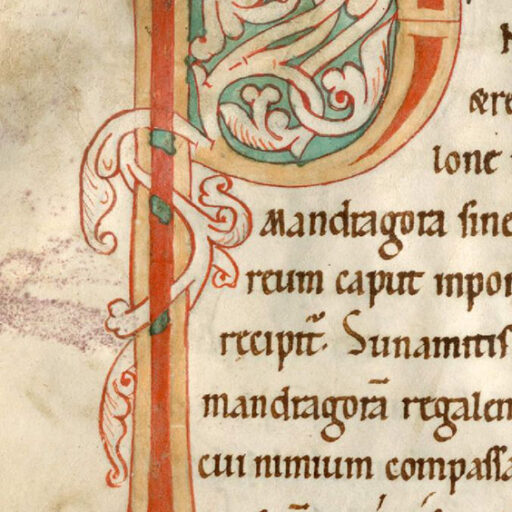 ære
lone
Mandragora sine
reum caput inpon
recipit̄. Sunamitis
mandragorā regalem
cui nimium compassa